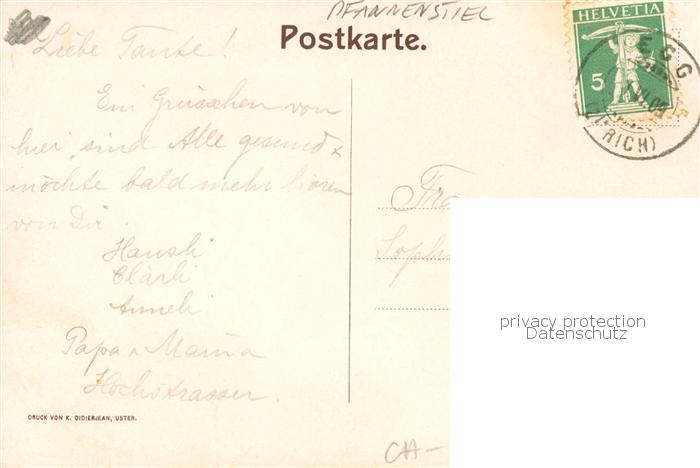 PFANNENSTIEL
Postkarte.
HELVETIA
5
EGG
(ZÜRICH)
Liebe Tante!
Ein Grüsschen von
hier, sind Alle gesund &
möchte bald mehr hören
von Dir.
Hansli
Clärli
Anneli
Papa & Mama
Hochstrasser.
Fra
Soph
privacy protection
Datenschutz
DRUCK VON K. DIDIERJEAN, USTER.
CH-